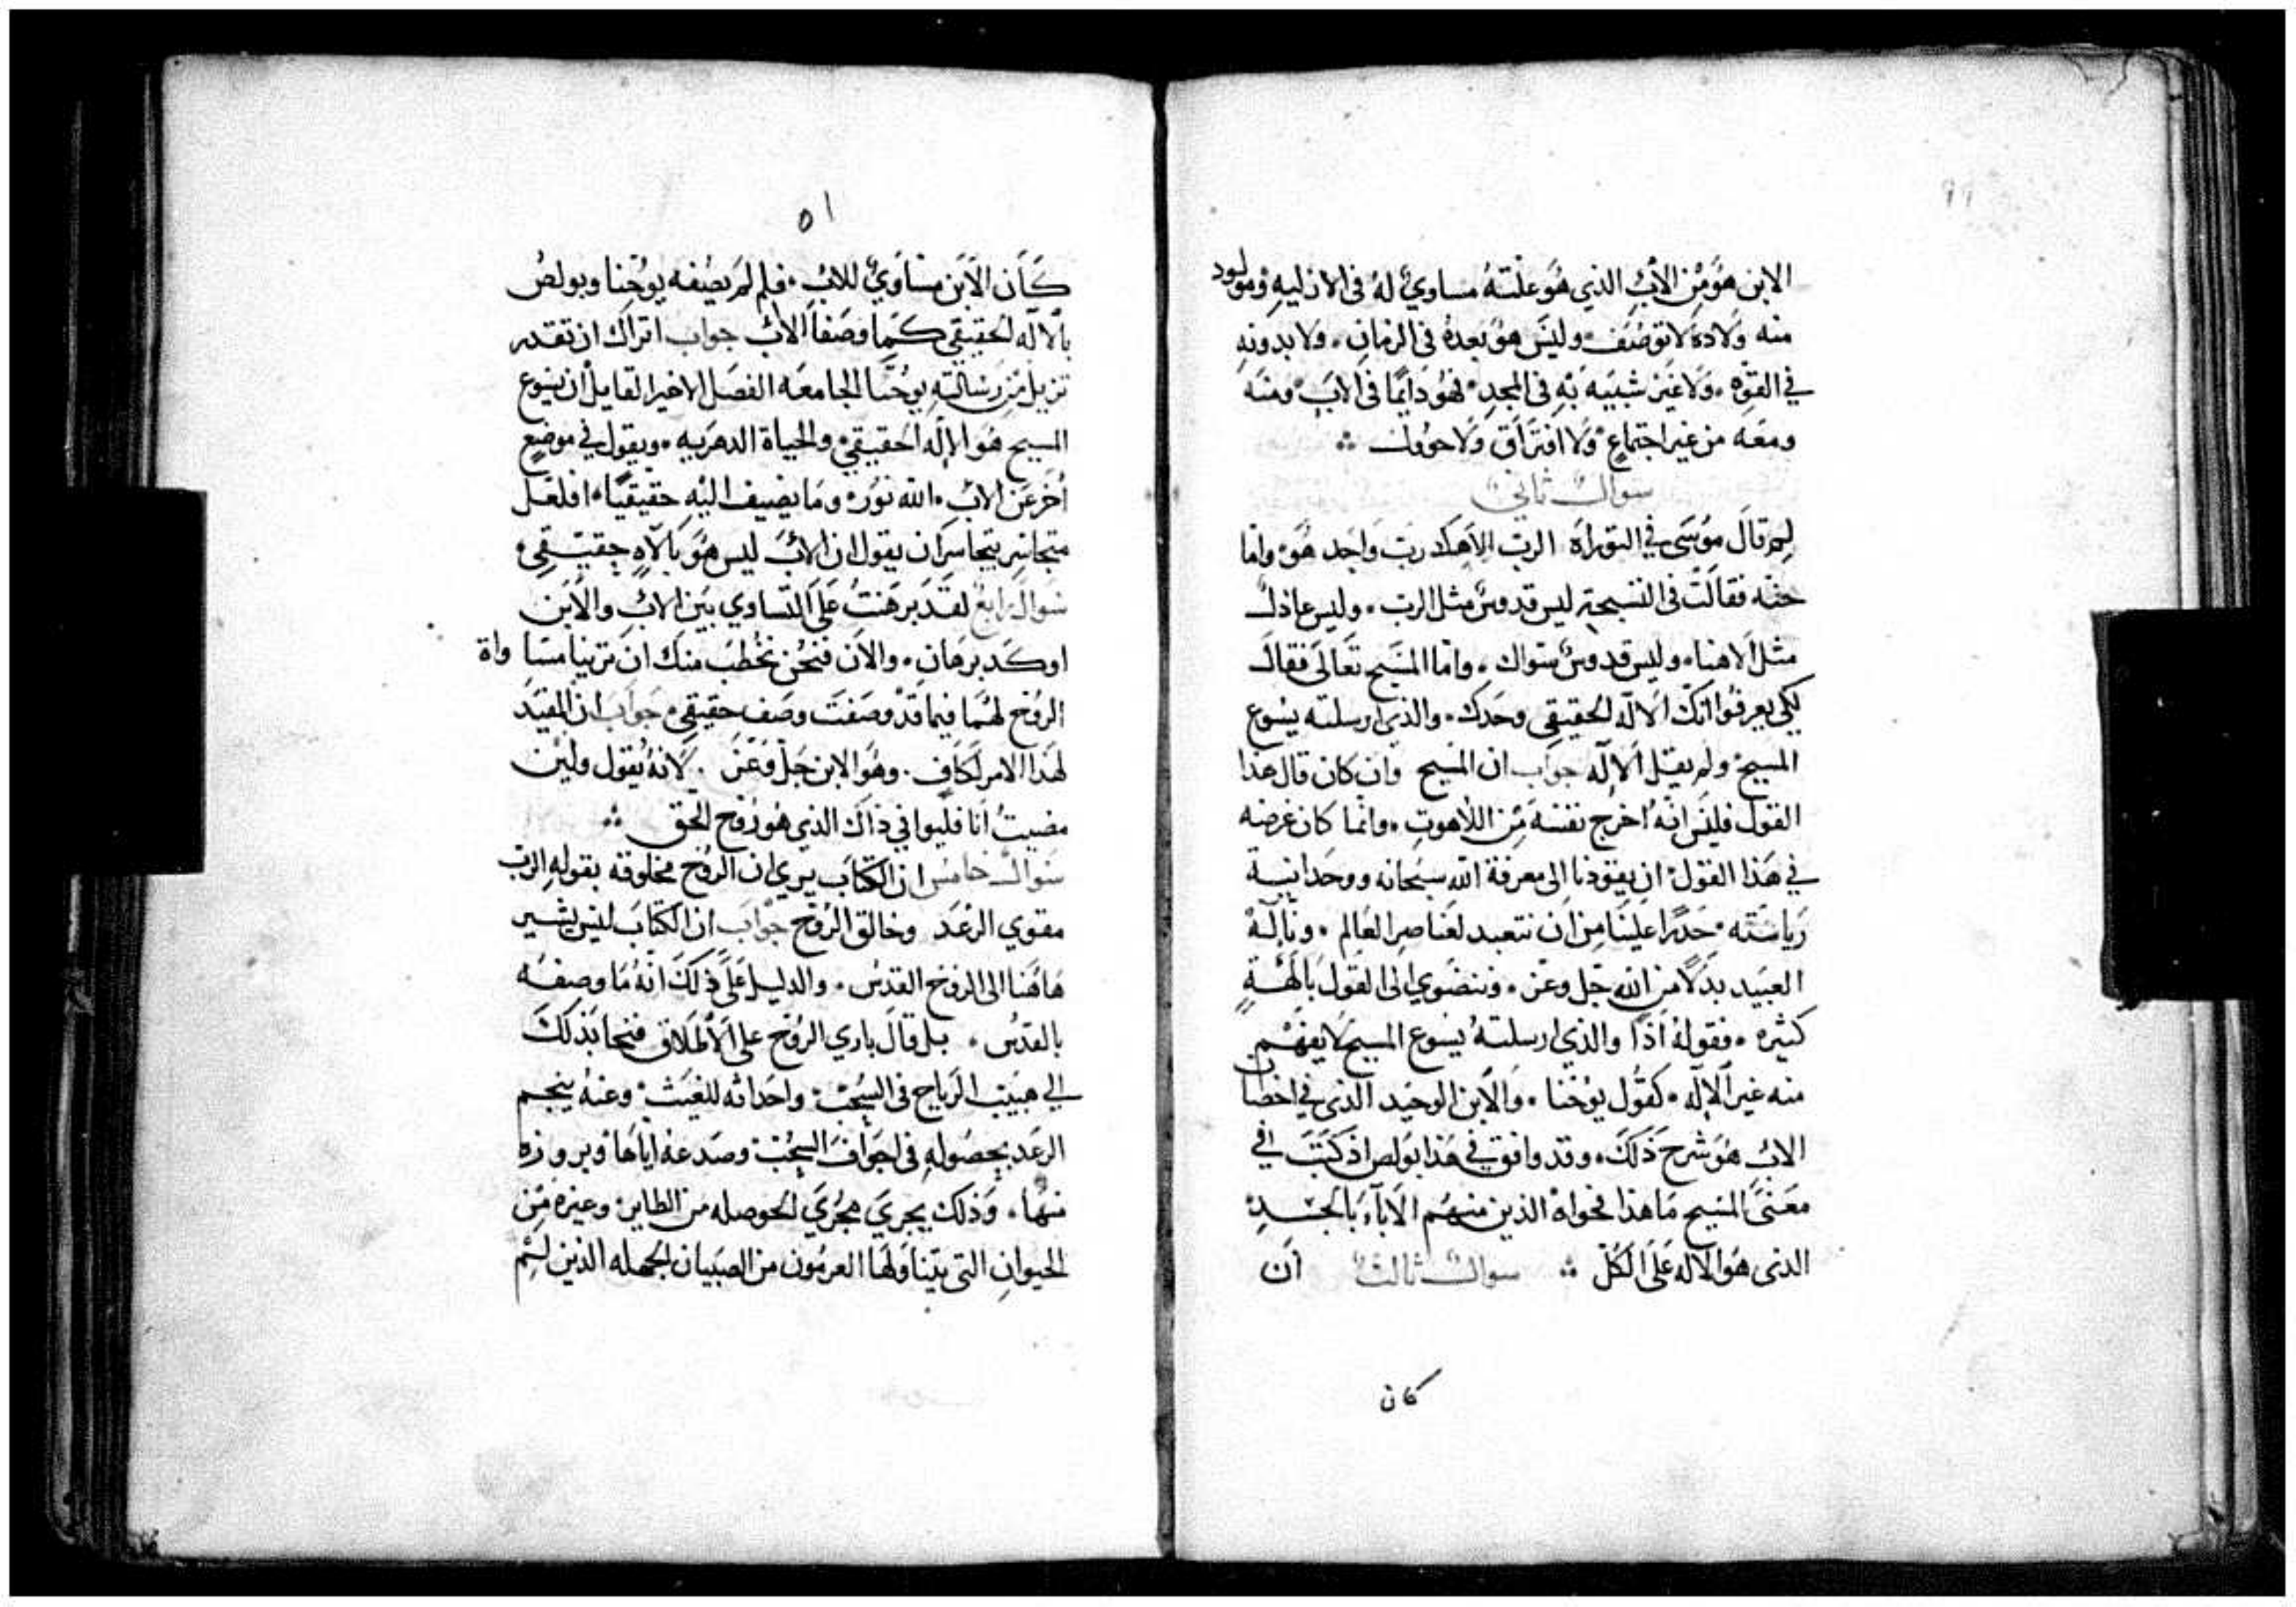 الابن هو من الاب الذي هو علته مساوي له في الازليه ومولود
منه ولادة لا توصف وليس هو بعده في الزمان. ولا بدونه
في القوه. ولا غير شبيه به في المجد فهو دايما في الاب ومنه
ومعه من غير اجتماع ولا افتراق ولا حوول ⁘
سوال ثاني
لم قال موسى في التوراة الرب الاهك رب واحد هو واما
حنه فقالت في التسبحة ليس قدوس مثل الرب. وليس عادل
مثل الاهنا. وليس قدوس سواك. واما المسيح تعالى فقال
لكي يعرفوا انك الاله الحقيقي وحدك. والذي ارسلته يسوع
المسيح ولم يقل الاله جواب ان المسيح وان كان قال هذا
القول فليس انه اخرج نفسه من اللاهوت. وانما كان غرضه
في هذا القول ان يقودنا الى معرفة الله سبحانه ووحدانية
رياسته حذرا علينا من ان نتعبد لعناصر العالم. ونالة
العبيد بدلا من الله جل وعز. وننضوي الى القول بالهة
كثيره. فقوله اذا والذي ارسلته يسوع المسيح لا يفهم
منه غير الاله. كقول يوحنا. والابن الوحيد الذي في احضان
الاب هو شرح ذلك. وقد وافق في هذا بولص اذ كتب في
معنى المسيح ما هذا فحواه الذين منهم الاباء بالجسد
الذي هو الاله على الكل ⁘ سوال ثالث ان
كان
٥١
كان الابن مساوي للاب. فلم لم يصفه يوحنا وبولص
بالاله الحقيقي كما وصفا الاب جواب اتراك ان تقدر
تزيل من رسالته يوحنا الجامعه الفصل الاخير القايل ان يسوع
المسيح هو الاله الحقيقي والحياة الدهريه. ويقول في موضع
اخر عن الاب. الله نور وما يضيف اليه حقيقيا. افلعل
متجاسر يتجاسر ان يقول ان الاب ليس هو بالاه حقيقي
سوال رابع لقد برهنت على التساوي بين الاب والابن
اوكد برهان. والان فنحن نخطب منك ان ترينا مساواة
الروح لهما فيما قد وصفت وصف حقيقي. جواب ان المفيد
لهذا الامر لكاف. وهو الابن جل وعز. لانه يقول ولين
مضيت انا فليوافي ذاك الذي هو روح الحق ⁘
سوال خامس ان الكتاب يري ان الروح مخلوقه بقوله الرب
مقوي الرعد وخالق الروح جواب ان الكتاب ليس يشير
هاهنا الى الروح القدس. والدليل على ذلك انه ما وصفه
بالقدس. بل قال باري الروح على الاطلاق فنحا بذلك
الى هبيب الرياح في السحب واحداثه للغيث وعنه ينجم
الرعد بحصوله في اجواف السحب وصدعه اياها وبروزه
منها. وذلك يجري مجري الحوصله من الطاير وغيره من
الحيوان التي يتناولها العرمون من الصبيان الجهله الذين لشم